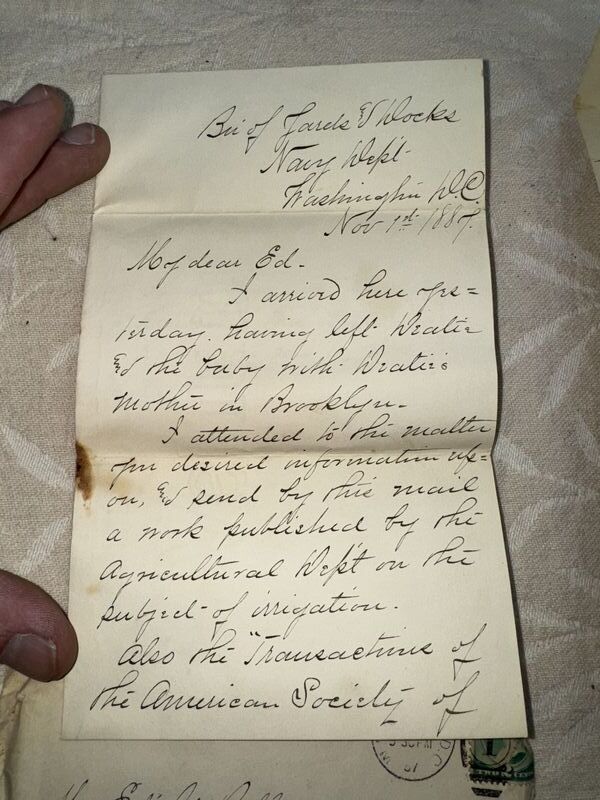 Bu of Yards & Docks
Navy Dep't
Washington D.C.
Nov 1st 1887.
My dear Ed-
I arrived here yes=
terday, having left
& the baby with
Mother in Brooklyn-
I attended to the matter
you desired information up=
on, & send by this mail
a work published by the
Agricultural Dep't on the
subject of irrigation.
Also the "Transactions of
the American Society of
87
D.C.
1